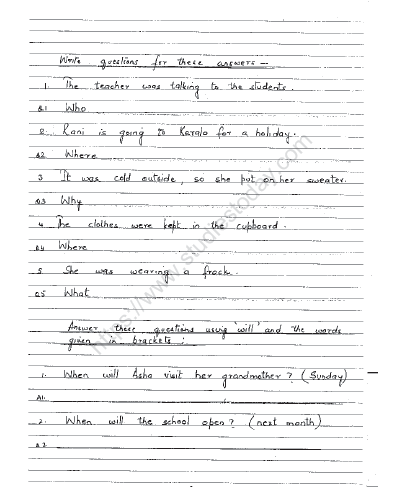 Write questions for these answers —
1. The teacher was talking to the students.
Q.1 Who
2. Rani is going to Kerala for a holiday.
Q2. Where
3 It was cold outside, so she put on her sweater.
Q3 Why
4 The clothes were kept in the cupboard.
Q4 Where
5 She was wearing a frock.
Q5 What
Answer these questions using 'will' and the words
given in brackets :
1. When will Asha visit her grandmother? (Sunday)
A1.
2. When will the school open? (next month)
A2.
https://www.studiestoday.com